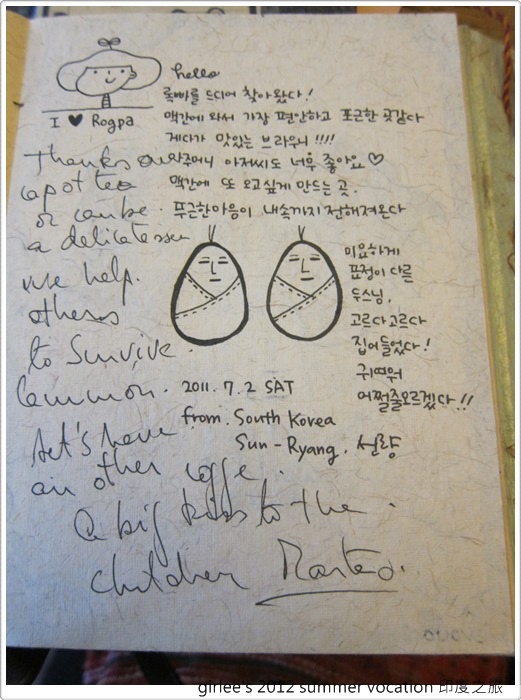 hello
I ♥ Rogpa
록빠를 드디어 찾아왔다!
맥간에 와서 가장 편안하고 포근한 곳같다
게다가 맛있는 브라우니 !!!!
아저씨도 너무 좋아요 ♡
맥간에 또 오고싶게 만드는 곳.
푸근한마음이 내속까지 전해져온다
미묘하게
표정이 다른
두스님.
고르다고르다
집어들었다!
귀여워
어쩔줄모르겠다!!
2011. 7. 2 SAT
from. South Korea
Sun-Ryang. 선량
Thanks
a pot tea
or can be
a delicatesse
we help.
others
to survive.
Common.
Let's have
an other coffe.
a big kiss to the
children
girlee's 2012 summer vocation 印度之旅